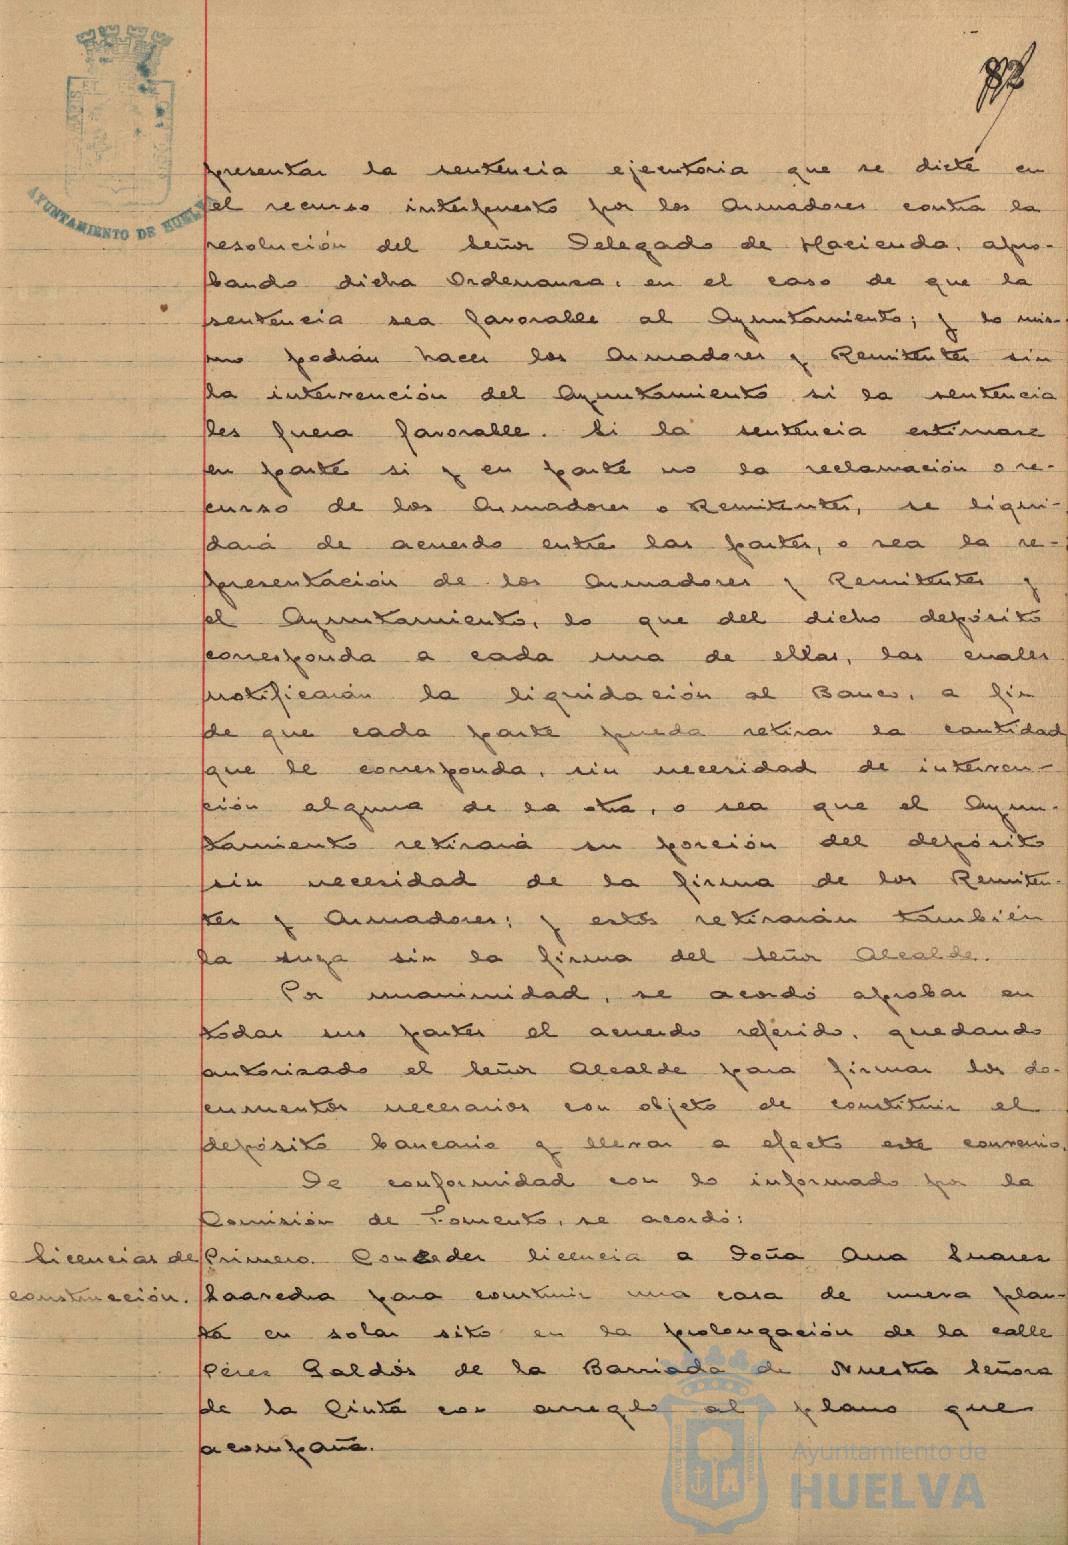 AYUNTAMIENTO DE HUELVA
presentar la sentencia ejecutoria que se dicte en
el recurso interpuesto por los Armadores contra la
resolución del Señor Delegado de Hacienda, apro-
bando dicha Ordenanza, en el caso de que la
sentencia sea favorable al Ayuntamiento; y lo mis-
mo podrán hacer los Armadores y Remitentes sin
la intervención del Ayuntamiento si la sentencia
les fuera favorable. Si la sentencia estimase
en parte si y en parte no la reclamación o re-
curso de los Armadores o Remitentes, se liqui-
dará de acuerdo entre las partes, o sea la re-
presentación de los Armadores y Remitentes y
el Ayuntamiento, lo que del dicho depósito
corresponda a cada una de ellas, las cuales
notificarán la liquidación al Banco, a fin
de que cada parte pueda retirar la cantidad
que le corresponda, sin necesidad de interven-
ción alguna de la otra, o sea que el Ayun-
tamiento retirará su porción del depósito
sin necesidad de la firma de los Remiten-
tes y Armadores; y estos retirarán también
la suya sin la firma del Señor Alcalde.
Por unanimidad, se acordó aprobar en
todas sus partes el acuerdo referido, quedando
autorizado el Señor Alcalde para firmar los do-
cumentos necesarios con objeto de constituir el
depósito bancario y llevar a efecto este convenio.
De conformidad con lo informado por la
Comisión de Fomento, se acordó:
Licencias de
construcción.
Primero. Conceder licencia a Doña Ana Suarez
Saavedra para construir una casa de nueva plan-
ta en solar sito en la prolongación de la calle
Pérez Galdós de la Barriada de Nuestra Señora
de la Cinta con arreglo al plano que
acompaña.
Ayuntamiento de
HUELVA